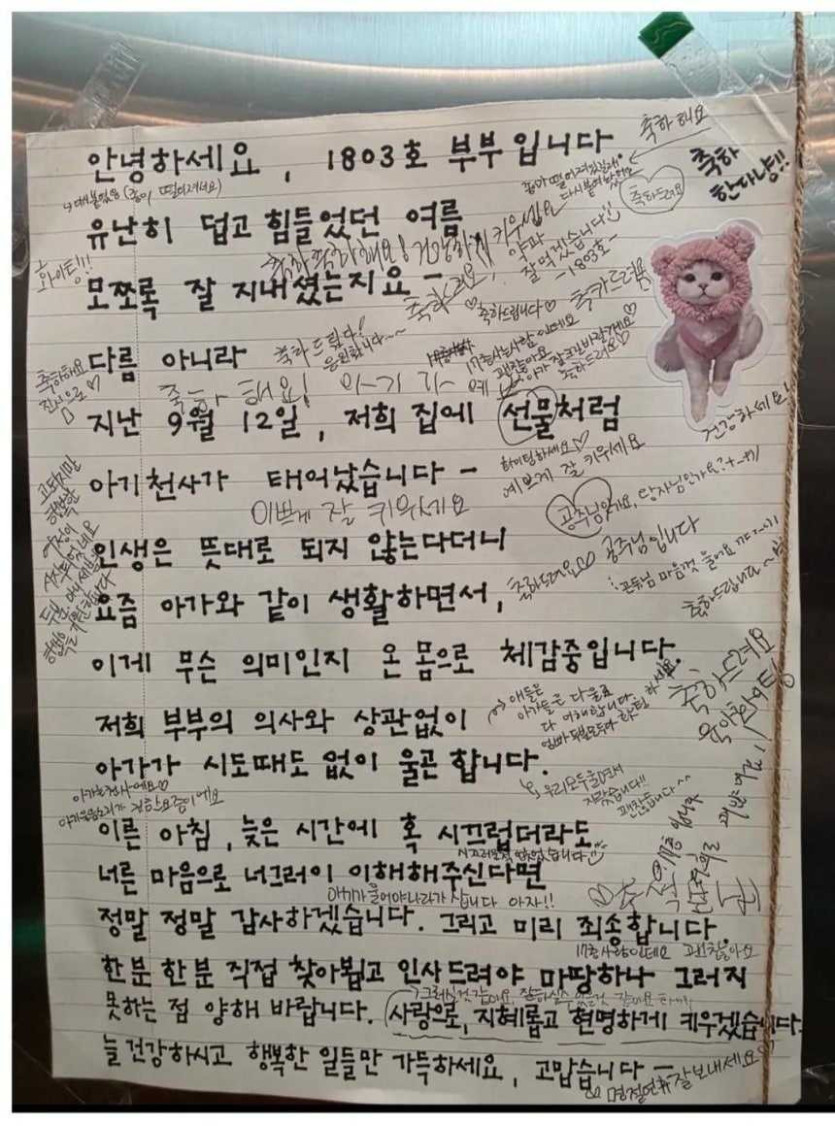 안녕하세요, 1803호 부부입니다
축하해요
축하
한다냥!!
축하드려요
유난히 덥고 힘들었던 여름
화이팅!!!
축하축하해요! 건강하게 키우셔요
약과
잘 먹겠습니다
-1803호-
모쪼록 잘 지내셨는지요-
축하드려요,
♡축하드립니다♡
다름 아니라
축하드림다!
응원합니다~~
축하해요
진심으로♡
축하해요! 아기가
축하드려요♡
지난 9월 12일, 저희 집에 선물처럼
건강하세요!
화이팅하세요♡
예쁘게 잘 키우세요
아기천사가 태어났습니다-
이쁘게 잘 키우세요
공주님인가요, 왕자님인가요?
인생은 뜻대로 되지 않는다더니
공주님입니다
축하드려요♡♡
요즘 아가와 같이 생활하면서,
축하드립니다~
이게 무슨 의미인지 온 몸으로 체감중입니다.
축하드려요
육아화이팅
저희 부부의 의사와 상관없이
애들은
아가들은 다 울료
다 이해합니다.
아가가 시도때도 없이 울곤 합니다.
우리 모두 울면서
자랐습니다!!
괜찮습니다^^
아가는 천사예요♡
이른 아침, 늦은 시간에 혹 시끄럽더라도
너른 마음으로 너그러이 이해해주신다면
아기가 울어야 나라가 삽니다 아자!!
정말 정말 감사하겠습니다. 그리고 미리 죄송합니다
17층 사람인데요 괜찮아요
한분 한분 직접 찾아뵙고 인사드려야 마땅하나 그러지
못하는 점 양해 바랍니다. 사랑으로, 지혜롭고 현명하게 키우겠습니다.
늘 건강하시고 행복한 일들만 가득하세요, 고맙습니다-
명절연휴 잘보내세요